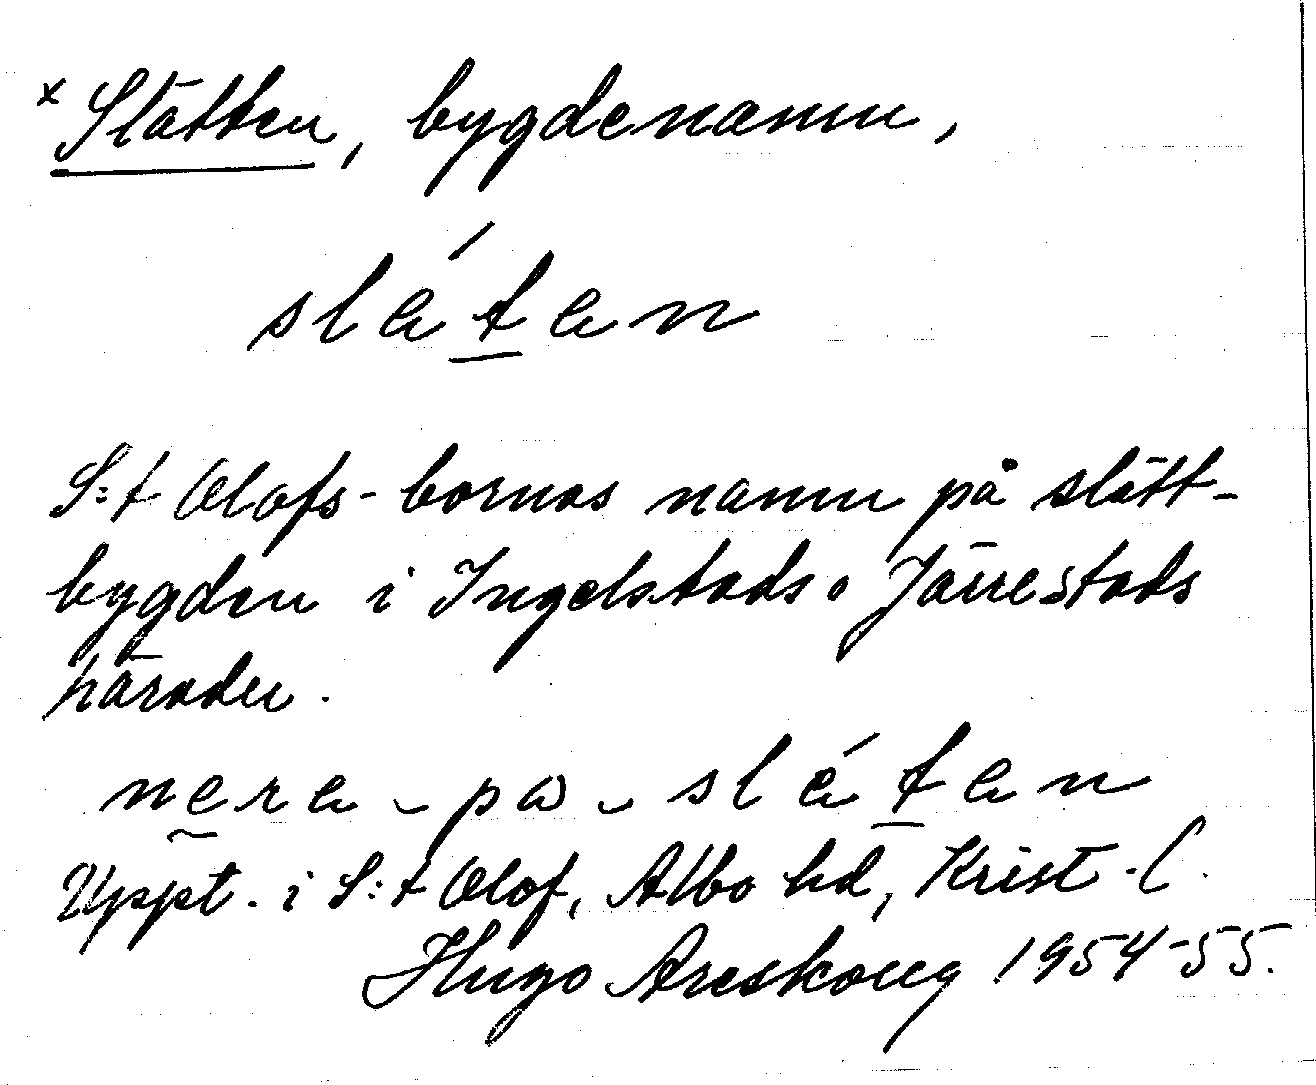 x Slätten, bygdenamn,
slátan
S:t Olofs-bornas namn på slätt-
bygden i Ingelstads o Järrestads
härader.
nera - pa - slátan
Uppt. i S:t Olof, Albo hd, Krist. l.
Hugo Areskoug 1954-55.